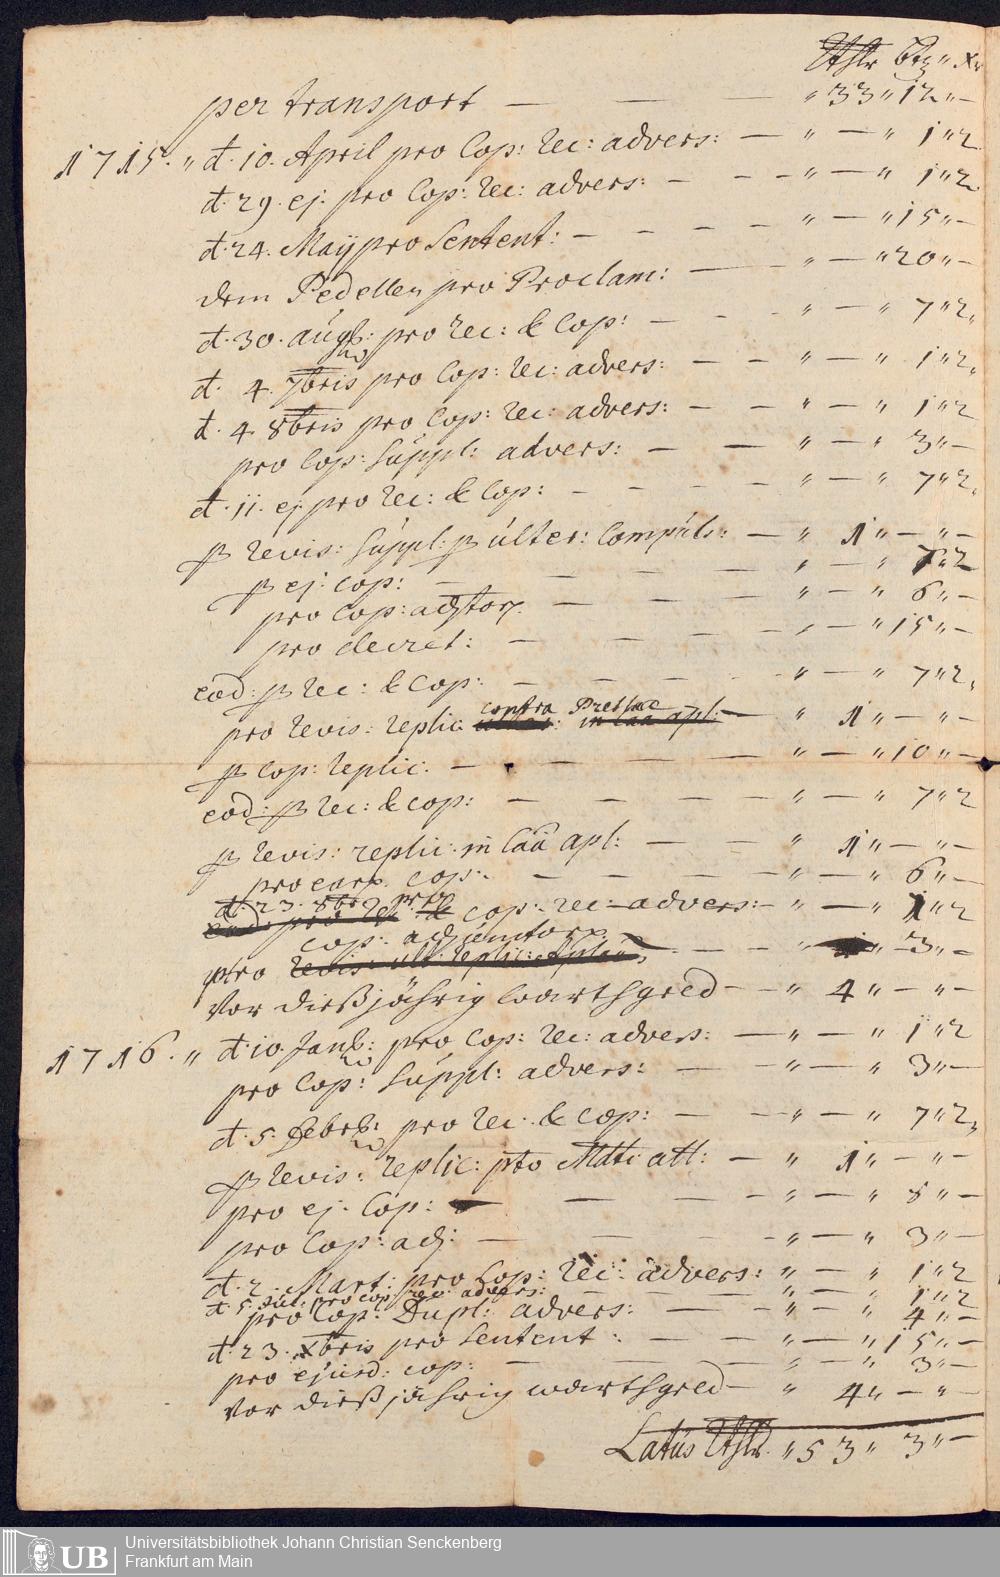 Rthlr Btz " Xr
per transport — — — " 33 " 12 " —
1715. " d. 10. April pro Cop: rec: advers: — " — " 1 " 2
d. 29. ej. pro Cop: rec: advers: — — — " — " 1 " 2
d. 24. Maÿ pro Sentent: — — — — " — " 15 " —
dem Pedellen pro Proclam: — — " — " 20 " —
d. 30. aug: pro rec: & Cop: — — — " — " 7 " 2
d. 4. 7bris pro Cop: rec: advers: — — " — " 1 " 2
d. 4. 8bris pro Cop: rec: advers: — — " — " 1 " 2
pro Cop: Suppl: advers: — — " — " 3 " —
d. 11. ej. pro rec: & Cop: — — — — " — " 7 " 2
p revis: Suppl: p ulter: Compuls: — " 1 " — " —
p ej. cop: — — — — " — " 1 " 2
pro Cop: adjtor. — — — " — " 6 " —
pro decret: — — — — " — " 15 " —
eod: p rec: & Cop: — — — — " — " 7 " 2
pro revis: replic contra in Caa apl: — " 1 " — " —
p cop: replic. — — — — " — " 10 " —
eod: p rec: & cop: — — — — " — " 7 " 2
p revis: replic. in Caa apl: — — " 1 " — " —
pro cop: — — — — " — " 6 " —
d. 23. 8br pro cop: rec: advers: — " — " 1 " 2
cop: adj
pro — — " — 3 " —
Vor dießjährig wartsgeld — — " 4 " — " —
1716. " d. 10. Janr: pro Cop: rec: advers: — — " — " 1 " 2
pro Cop: Suppl: advers: — — " — " 3 " —
d. 5. Febr: pro rec. & cop: — — " — " 7 " 2
p revis: replic: pto att: — " 1 " — " —
pro ej. Cop: — — — — " — " 8 " —
pro Cop: adj: — — — " — " 3 " —
d. 2. Mart: pro Cop: rec: advers: " — " 1 " 2
d. 5. Jul: pro cop: rec: advers: — — " — " 1 " 2
pro Cop: Dupl: advers: — — " — " 4 " —
d. 23. Xbris pro Sentent: — — " — " 15 " —
pro ejusd: cop: — — — " — " 3 " —
Vor dießjährig wartsgeld — " 4 " — " —
Latus Rthlr. " 53 " 3 " —
UB Universitätsbibliothek Johann Christian Senckenberg
Frankfurt am Main